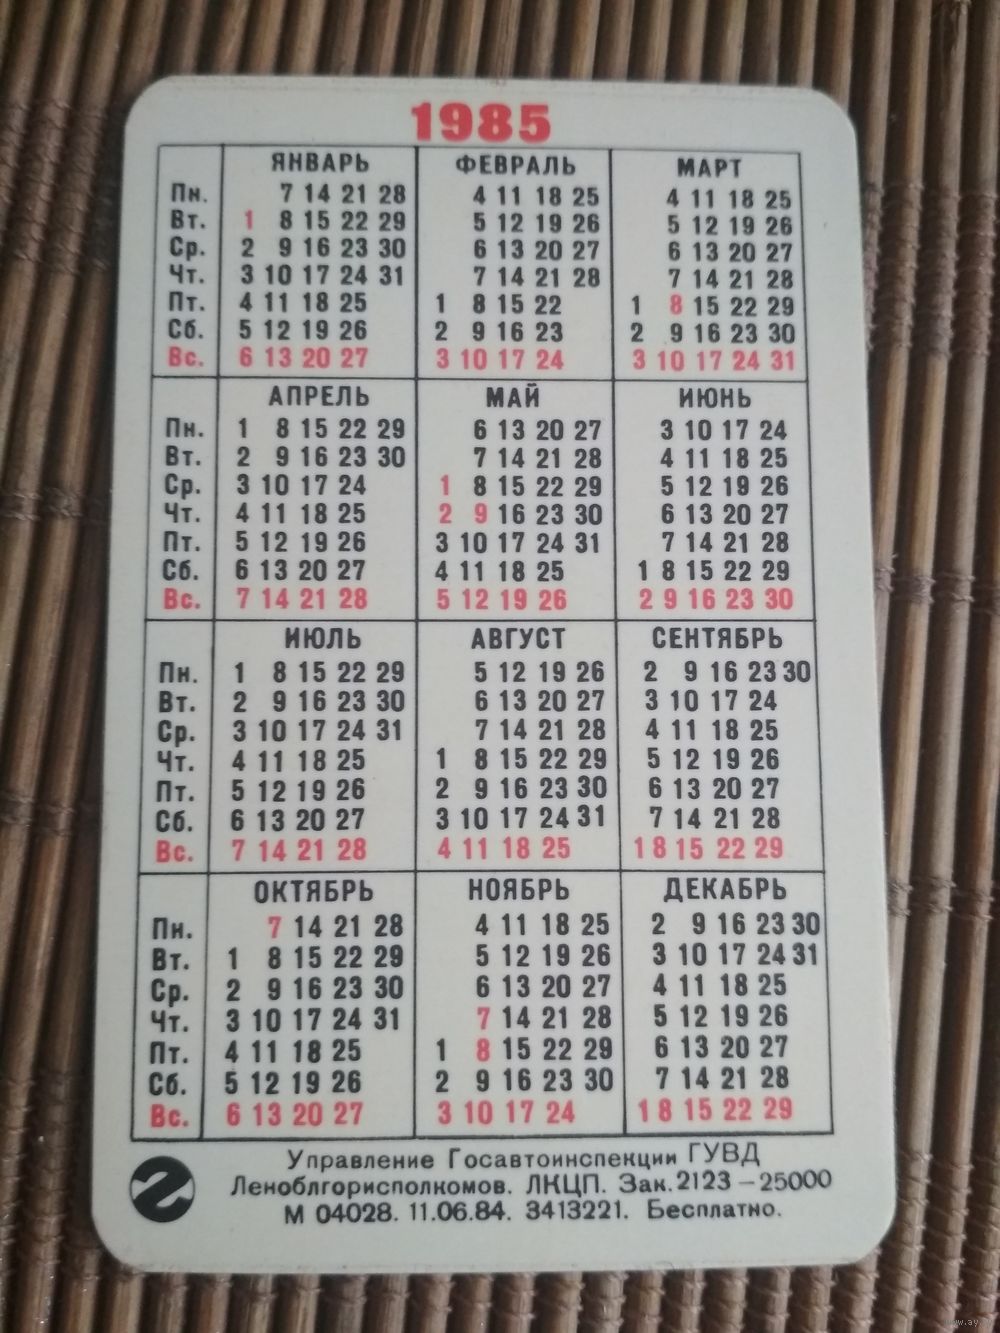 1985
ЯНВАРЬ ФЕВРАЛЬ МАРТ
Пн. 7 14 21 28 4 11 18 25 4 11 18 25
Вт. 1 8 15 22 29 5 12 19 26 5 12 19 26
Ср. 2 9 16 23 30 6 13 20 27 6 13 20 27
Чт. 3 10 17 24 31 7 14 21 28 7 14 21 28
Пт. 4 11 18 25 1 8 15 22 1 8 15 22 29
Сб. 5 12 19 26 2 9 16 23 2 9 16 23 30
Вс. 6 13 20 27 3 10 17 24 3 10 17 24 31
АПРЕЛЬ МАЙ ИЮНЬ
Пн. 1 8 15 22 29 6 13 20 27 3 10 17 24
Вт. 2 9 16 23 30 7 14 21 28 4 11 18 25
Ср. 3 10 17 24 1 8 15 22 29 5 12 19 26
Чт. 4 11 18 25 2 9 16 23 30 6 13 20 27
Пт. 5 12 19 26 3 10 17 24 31 7 14 21 28
Сб. 6 13 20 27 4 11 18 25 1 8 15 22 29
Вс. 7 14 21 28 5 12 19 26 2 9 16 23 30
ИЮЛЬ АВГУСТ СЕНТЯБРЬ
Пн. 1 8 15 22 29 5 12 19 26 2 9 16 23 30
Вт. 2 9 16 23 30 6 13 20 27 3 10 17 24
Ср. 3 10 17 24 31 7 14 21 28 4 11 18 25
Чт. 4 11 18 25 1 8 15 22 29 5 12 19 26
Пт. 5 12 19 26 2 9 16 23 30 6 13 20 27
Сб. 6 13 20 27 3 10 17 24 31 7 14 21 28
Вс. 7 14 21 28 4 11 18 25 1 8 15 22 29
ОКТЯБРЬ НОЯБРЬ ДЕКАБРЬ
Пн. 7 14 21 28 4 11 18 25 2 9 16 23 30
Вт. 1 8 15 22 29 5 12 19 26 3 10 17 24 31
Ср. 2 9 16 23 30 6 13 20 27 4 11 18 25
Чт. 3 10 17 24 31 7 14 21 28 5 12 19 26
Пт. 4 11 18 25 1 8 15 22 29 6 13 20 27
Сб. 5 12 19 26 2 9 16 23 30 7 14 21 28
Вс. 6 13 20 27 3 10 17 24 1 8 15 22 29
Управление Госавтоинспекции ГУВД
Леноблгорисполкомов. ЛКЦП. Зак. 2123 – 25000
М 04028. 11.06.84. 3413221. Бесплатно.